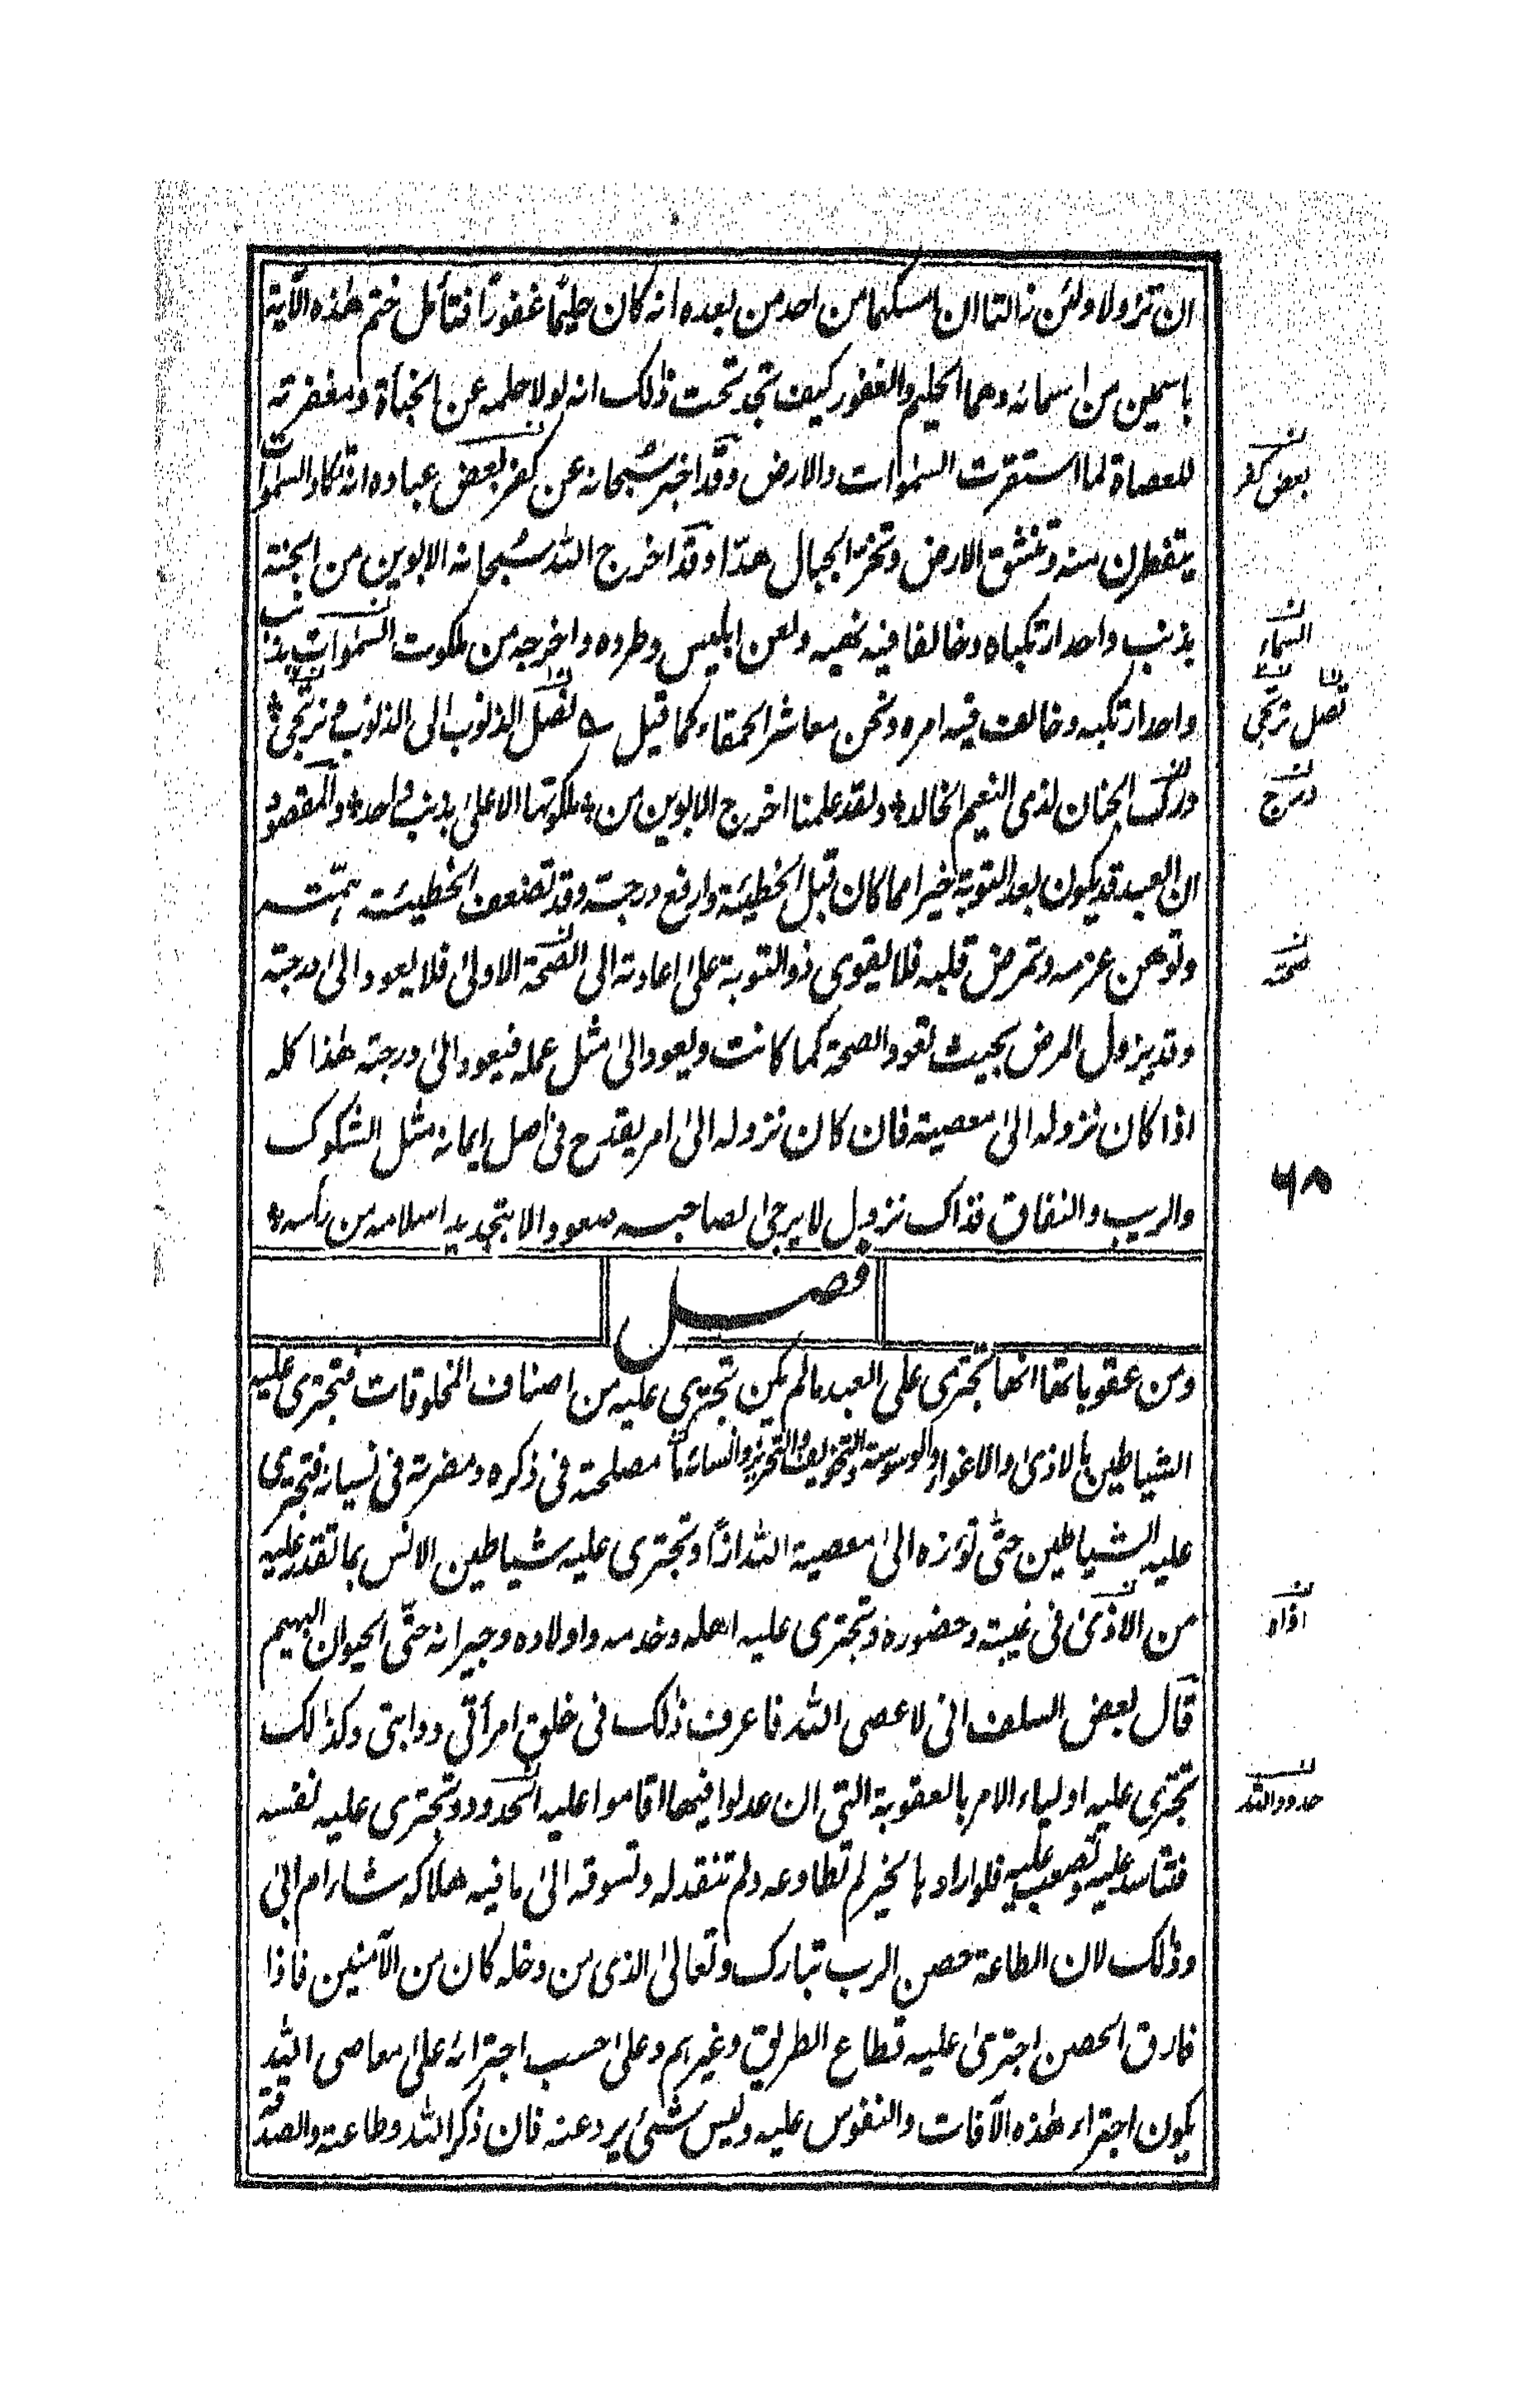 ان تزولا ولئن زالتا ان امسكهما من احد من بعده انه كان حليمًا غفورًا فتأمل ختم هٰذه الآية
باسمين من اسمائه وهما الحليم والغفور كيف تجد تحت ذلك انه لولا حلمه عن الجناة ومغفرته
للعصاة لما استقرت السمٰوات والارض وقد اخبر سبحانه عن كفر بعض عباده انه تكاد السمٰوات
يتفطرن منه وتنشق الارض وتخر الجبال هدّا وقد اخرج الله سبحانه الابوين من الجنة
بذنب واحد ارتكباه وخالفا فيه نهيه ولعن ابليس وطرده واخرجه من ملكوت السمٰوات بذنب
واحد ارتكبه وخالف فيه امره ونحن معاشر الحمقاء كما قيل ؎ نصل الذنوب الى الذنوب ونرتجى
درك الجنان لذى النعيم الخالد ولقد علمنا اخرج الابوين من ملكوتها الاعلىٰ بذنب واحد والمقصود
ان العبد قد يكون بعد التوبة خيرا مما كان قبل الخطيئة وارفع درجته وقد تضعف الخطيئة همّته
وتوهن عزمه وتمرض قلبه فلا يقوى ذو التوبة علىٰ اعادته الى الصحة الاولىٰ فلا يعود الىٰ درجته
وقد يزول المرض بحيث تعود الصحة كما كانت ويعود الىٰ مثل عمله فيعود الىٰ درجته هٰذا كله
اذا كان نزوله الىٰ معصية فان كان نزوله الىٰ امر يقدح فى اصل ايمانه مثل الشكوك
والريب والنفاق فذاك نزول لا يرجىٰ لصاحبه صعود الا بتجديد اسلامه من رأسه
فصل
ومن عقوباتها انها تجترى على العبد ما لم يكن تجترى عليه من اصناف المخلوقات فتجترى عليه
الشياطين بالاذىٰ والاغواء والوسوسة والتخويف والتحزين وانسائه ما مصلحته فى ذكره ومضرته فى نسيانه فتجترى
عليه الشياطين حتّٰى تؤزه الىٰ معصية الله ازًّا وتجترى عليه شياطين الانس بما تقدر عليه
من الاذىٰ فى غيبته وحضوره وتجترى عليه اهله وخدمه واولاده وجيرانه حتّٰى الحيوان البهيم
قال بعض السلف انى لاعصى الله فاعرف ذلك فى خلق امرأتى ودوابتى وكذلك
تجترى عليه اولياء الامر بالعقوبة التى ان عدلوا فيها اقاموا عليه الحدود وتجترى عليه نفسه
فتتاسد عليه وتصعب عليه فلو اراد بها لخير لم تطاوعه ولم تنقد له وتسوقه الىٰ ما فيه هلاكه شاء ام ابىٰ
وذلك لان الطاعة حصن الرب تبارك وتعالىٰ الذى من دخله كان من الآمنين فاذا
فارق الحصن اجترىٰ عليه قطاع الطريق وغيرهم وعلىٰ حسب اجترائه علىٰ معاصى الله
يكون اجتراء هٰذه الآفات والنفوس عليه وليس شئ يرد عنه فان ذكر الله وطاعته والصدقة
بعض كفر
السماء
تصل ترتجى
درج
صحته
٦٨
اذاه
حدود الله